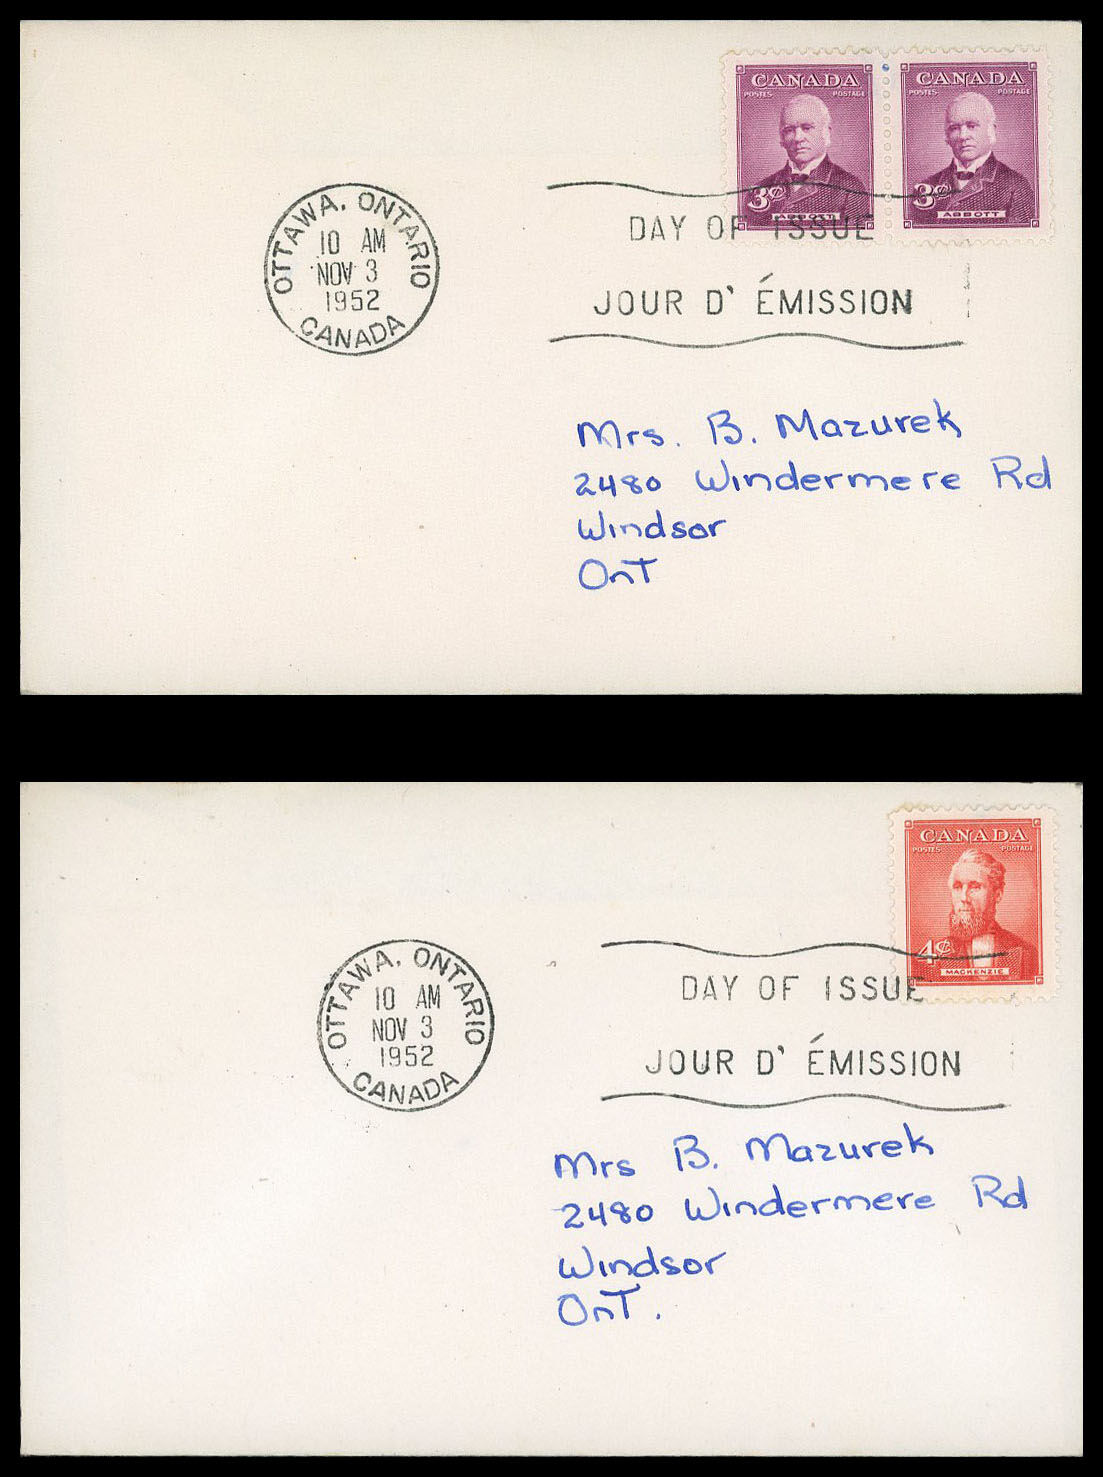 CANADA
POSTES POSTAGE
3¢
ABBOTT
CANADA
POSTES POSTAGE
3¢
ABBOTT
OTTAWA, ONTARIO
10 AM
NOV 3
1952
CANADA
DAY OF ISSUE
JOUR D' ÉMISSION
Mrs. B. Mazurek
2480 Windermere Rd
Windsor
OnT
CANADA
POSTES POSTAGE
4¢
MACKENZIE
OTTAWA, ONTARIO
10 AM
NOV 3
1952
CANADA
DAY OF ISSUE
JOUR D' ÉMISSION
Mrs B. Mazurek
2480 Windermere Rd
Windsor
OnT.